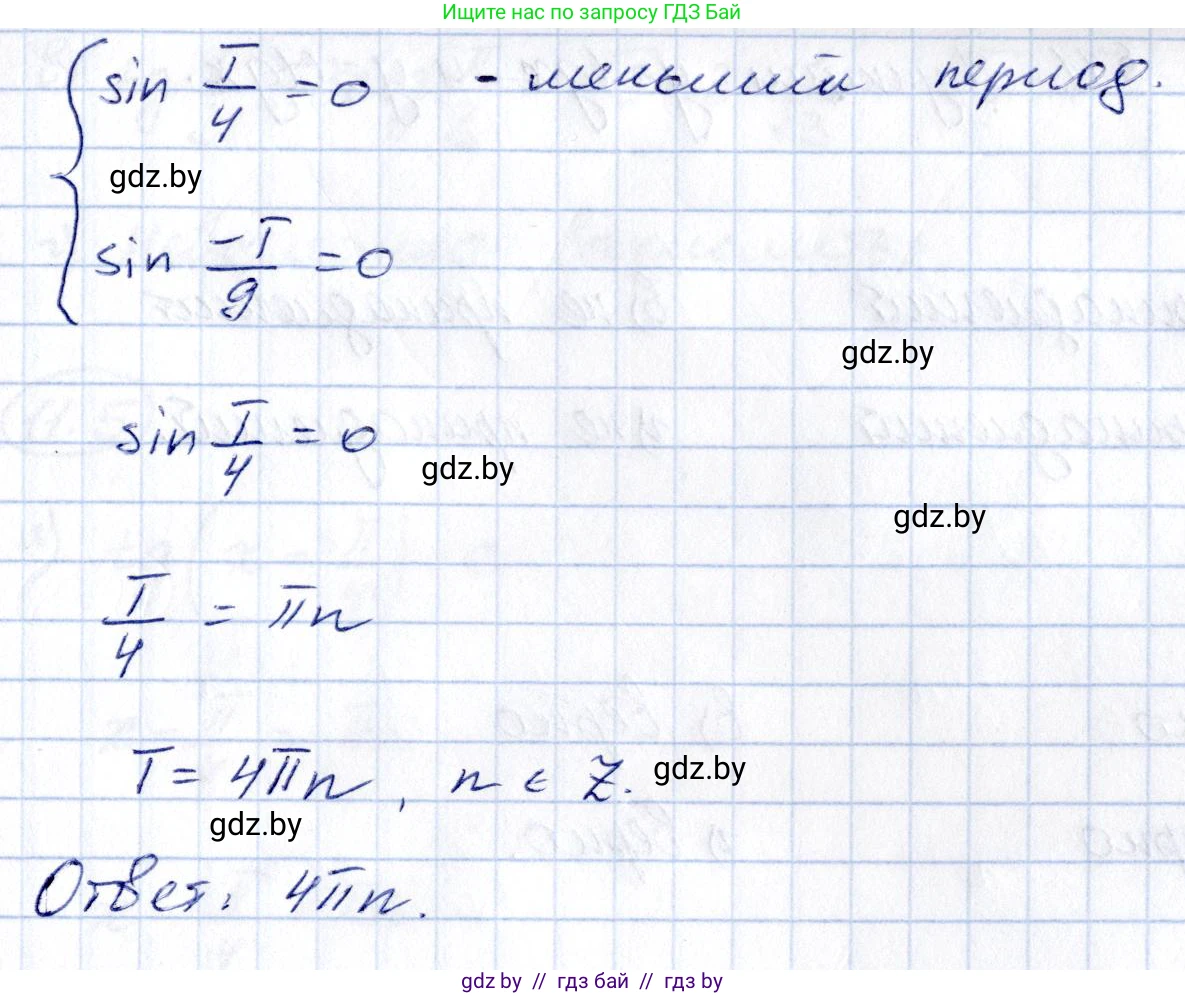 Ищите нас по запросу ГДЗ Бай
sin T/4 = 0 - меньший период.
gdz.by
sin -T/9 = 0
gdz.by
sin T/4 = 0
gdz.by
gdz.by
T/4 = πn
T = 4πn, n ∈ Z.
gdz.by
gdz.by
Ответ: 4πn.
gdz.by // гдз бай // гдз by